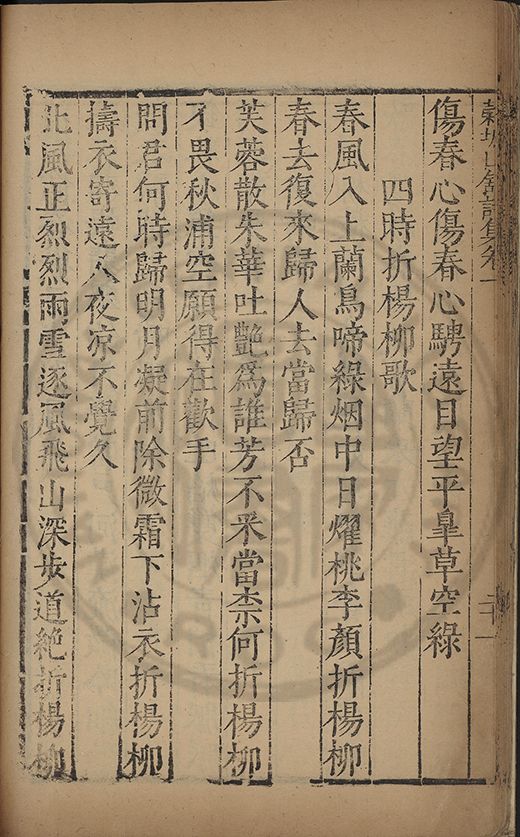 穀城山館詩集卷一
二十一
傷春心傷春心騁遠目望平臯草空綠
四時折楊柳歌
春風入上蘭鳥啼綠烟中日燿桃李顏折楊柳
春去復來歸人去當歸否
芙蓉散朱華吐艷為誰芳不采當柰何折楊柳
不畏秋浦空願得在歡手
問君何時歸明月凝前除微霜下沾衣折楊柳
擣衣寄遠人夜凉不覺久
北風正烈烈雨雪逐風飛山深步道絶折楊柳